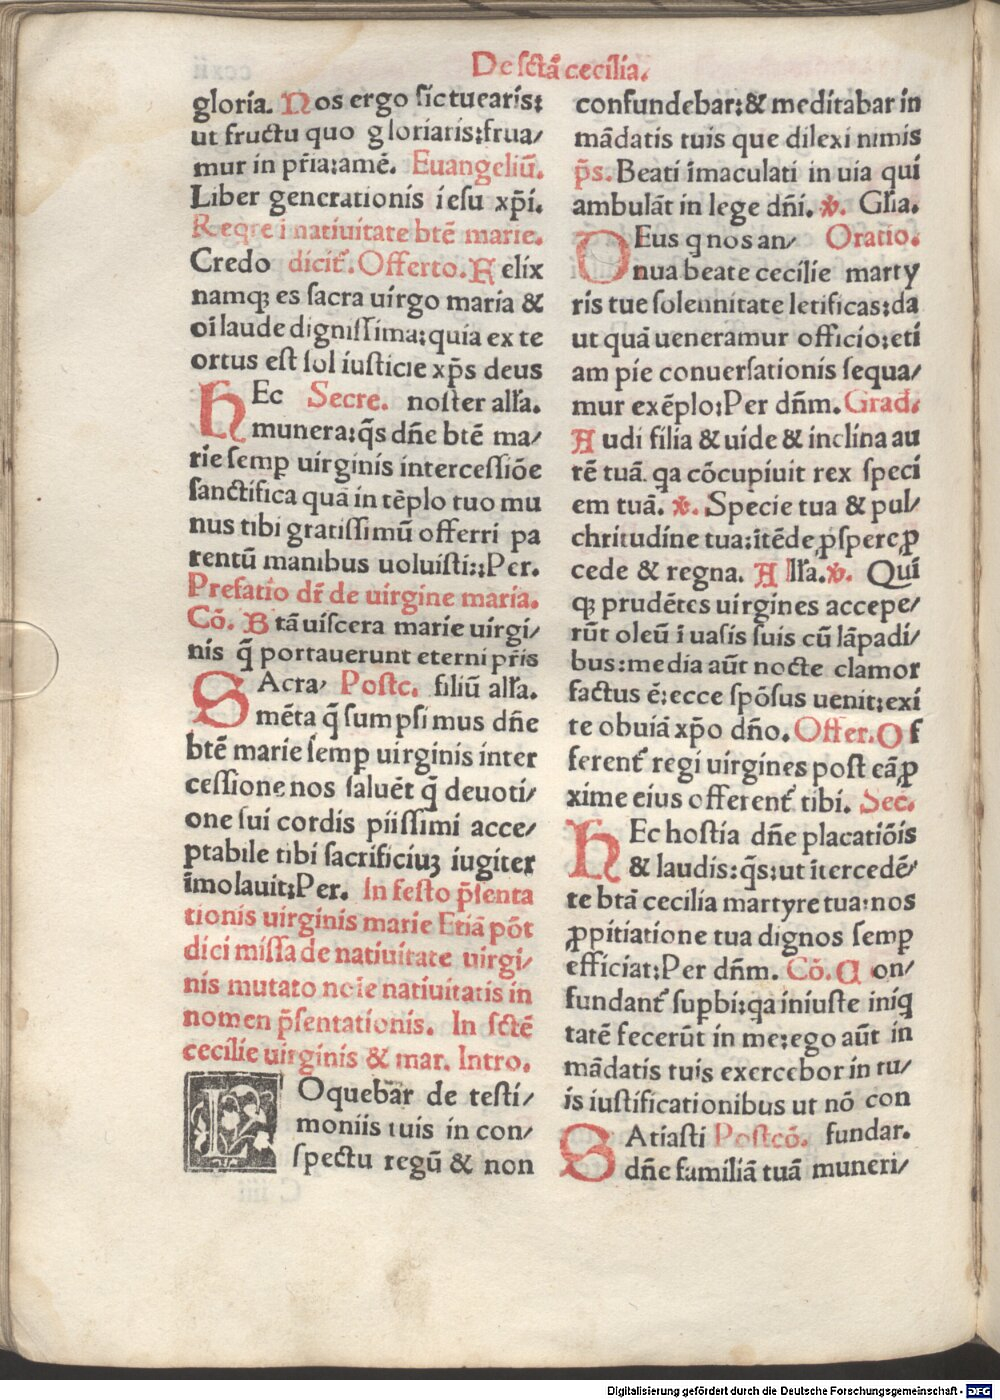 De sctã cecilia.
gloria. Nos ergo sic tuearis:
ut fructu quo gloriaris:frua/
mur in pr̄ia:amē. Euangeliū.
Liber generationis iesu xp̄i.
Reqre ī natiuitate btē marie.
Credo dicit̃. Offerto. Felix
namq; es sacra uirgo maria &
oī laude dignissima:quia ex te
ortus est sol iusticie xp̄s deus
HEc Secre. noster all'a.
munera:q̄s dn̄e btē ma/
rie semp̱ uirginis intercessiōe
sanctifica quā in tēplo tuo mu
nus tibi gratissimū offerri pa
rentū manibus uoluisti:;Per.
Prefatio dr̄ de uirgine maria.
Cō. Btā uiscera marie uirgi/
nis q̄ portauerunt eterni pr̄is
SAcra/ Postc. filiū all'a.
mēta q̄ sumpsimus dn̄e
btē marie semp̱ uirginis inter
cessione nos saluēt q̄ deuoti/
one sui cordis piissimi acce/
ptabile tibi sacrificiuȝ iugiter
īmolauit:Per. In festo p̄senta
tionis uirginis marie Etiā pōt
dici missa de natiuitate uirgi/
nis mutato noīe natiuitatis in
nomen p̄sentationis. In sctē
cecilie uirginis & mar. Intro.
LOquebar de testi/
moniis tuis in con/
spectu regū & non
confundebar:& meditabar in
mādatis tuis que dilexi nimis
p̄s. Beati imaculati in uia qui
ambulāt in lege dn̄i. ℣. Gl'ia.
DEus q nos an/ Oratio.
nua beate cecilie marty
ris tue solennitate letificas:da
ut quā ueneramur officio:eti
am pie conuersationis sequa/
mur exēplo:Per dn̄m. Grad.
Audi filia & uide & inclina au
rē tuā. qa cōcupiuit rex speci
em tuā. ℣. Specie tua & pul/
chritudine tua:ītēde ꝓspere ꝓ
cede & regna. All'a. ℣. Qui
q; prudētes uirgines accepe/
rūt oleū ī uasis suis cū lāpadi/
bus:media aūt nocte clamor
factus ē:ecce spōsus uenit:exi
te obuiā xp̄o dn̄o. Offer. Of
ferent̃ regi uirgines post eā ꝓ
xime eius offerent̃ tibi. Sec.
HEc hostia dn̄e placatiōis
& laudis:q̄s:ut ītercedē/
te btā cecilia martyre tua:nos
ꝓpitiatione tua dignos semp̱
efficiat:Per dn̄m. Cō. Con/
fundant̃ sup̱bi:qa iniuste iniq
tatē fecerūt in me:ego aūt in
mādatis tuis exercebor in tu/
is iustificationibus ut nō con
SAtiasti Postcō. fundar.
dn̄e familiā tuā muneri/
Digitalisierung gefördert durch die Deutsche Forschungsgemeinschaft - DFG